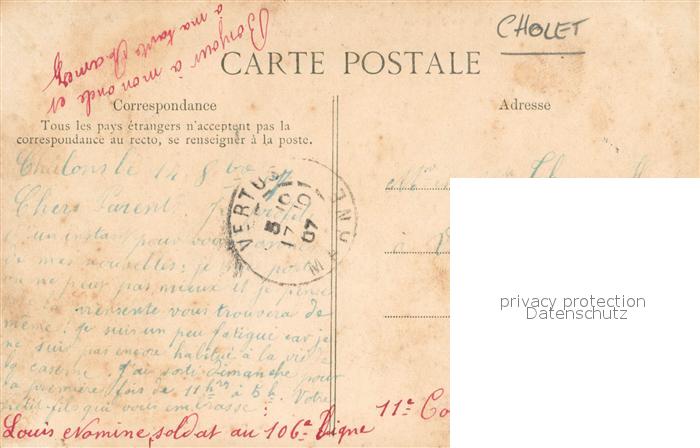 CHOLET
Bonjour à mon oncle et
à ma tante
CARTE POSTALE
Correspondance
Adresse
Tous les pays étrangers n'acceptent pas la
correspondance au recto, se renseigner à la poste.
Chalons le 14 8bre 07
Chers Parent. Je profite
d'un instant pour vous
de mes nouvelles: je me porte
on ne peux pas mieux et je pense
vous trouvera de
même: je suis un peu fatigué car je
ne suis pas encore habitué à la vie de
la caserne. J'ai sorti dimanche pour
la première fois de 11h à 5h. Votre
petit fils qui vous embrasse:
Louis Nomine, soldat au 106e Ligne
11e Co
VERTUS
MARNE
17
07
privacy protection
Datenschutz